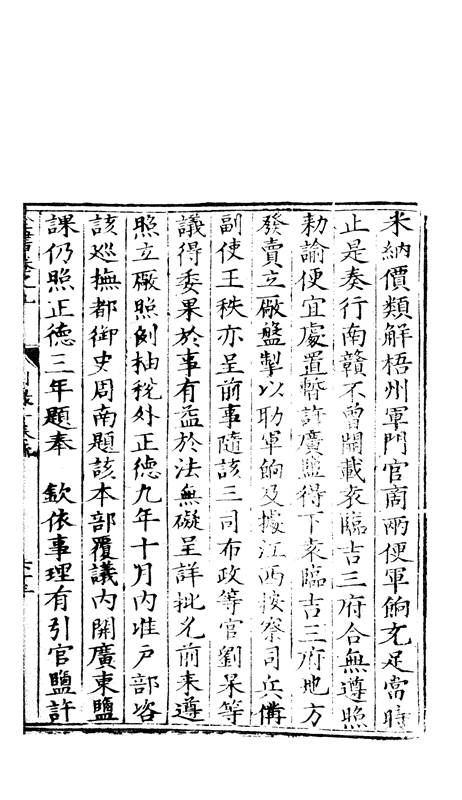 米納價類解梧州軍門官商兩便軍餉充足當時
止是奏行南贛不曾開載袁臨吉三府合無遵照
勑諭便宜處置暫許廣鹽得下袁臨吉三府地方
發賣立廠盤掣以助軍餉及據江西按察司兵俻
副使王秩亦呈前事隨該三司布政等官劉杲等
議得委果於事有益於法無礙呈詳批允前来遵
照立廠照例抽稅外正德九年十月內准戶部咨
該巡撫都御史周南題該本部覆議內開廣東鹽
課仍照正德三年題奉　欽依事理有引官鹽許